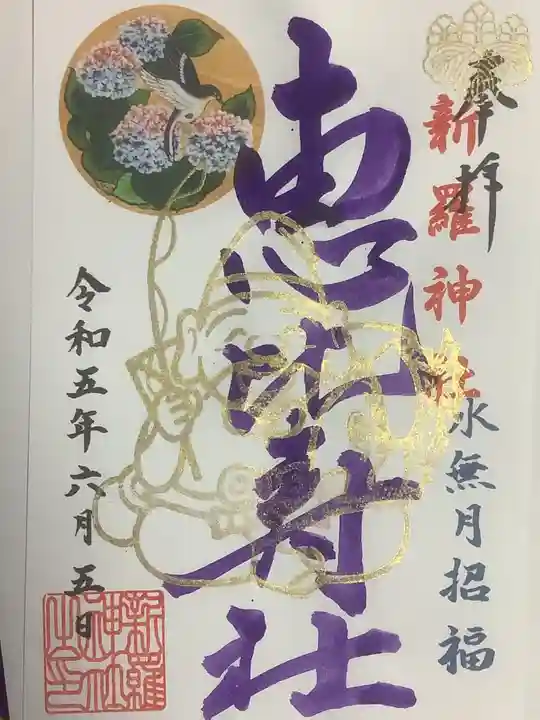 奉拝
新羅神社
水無月招福
恵比寿社
令和五年六月五日
新羅神社之印